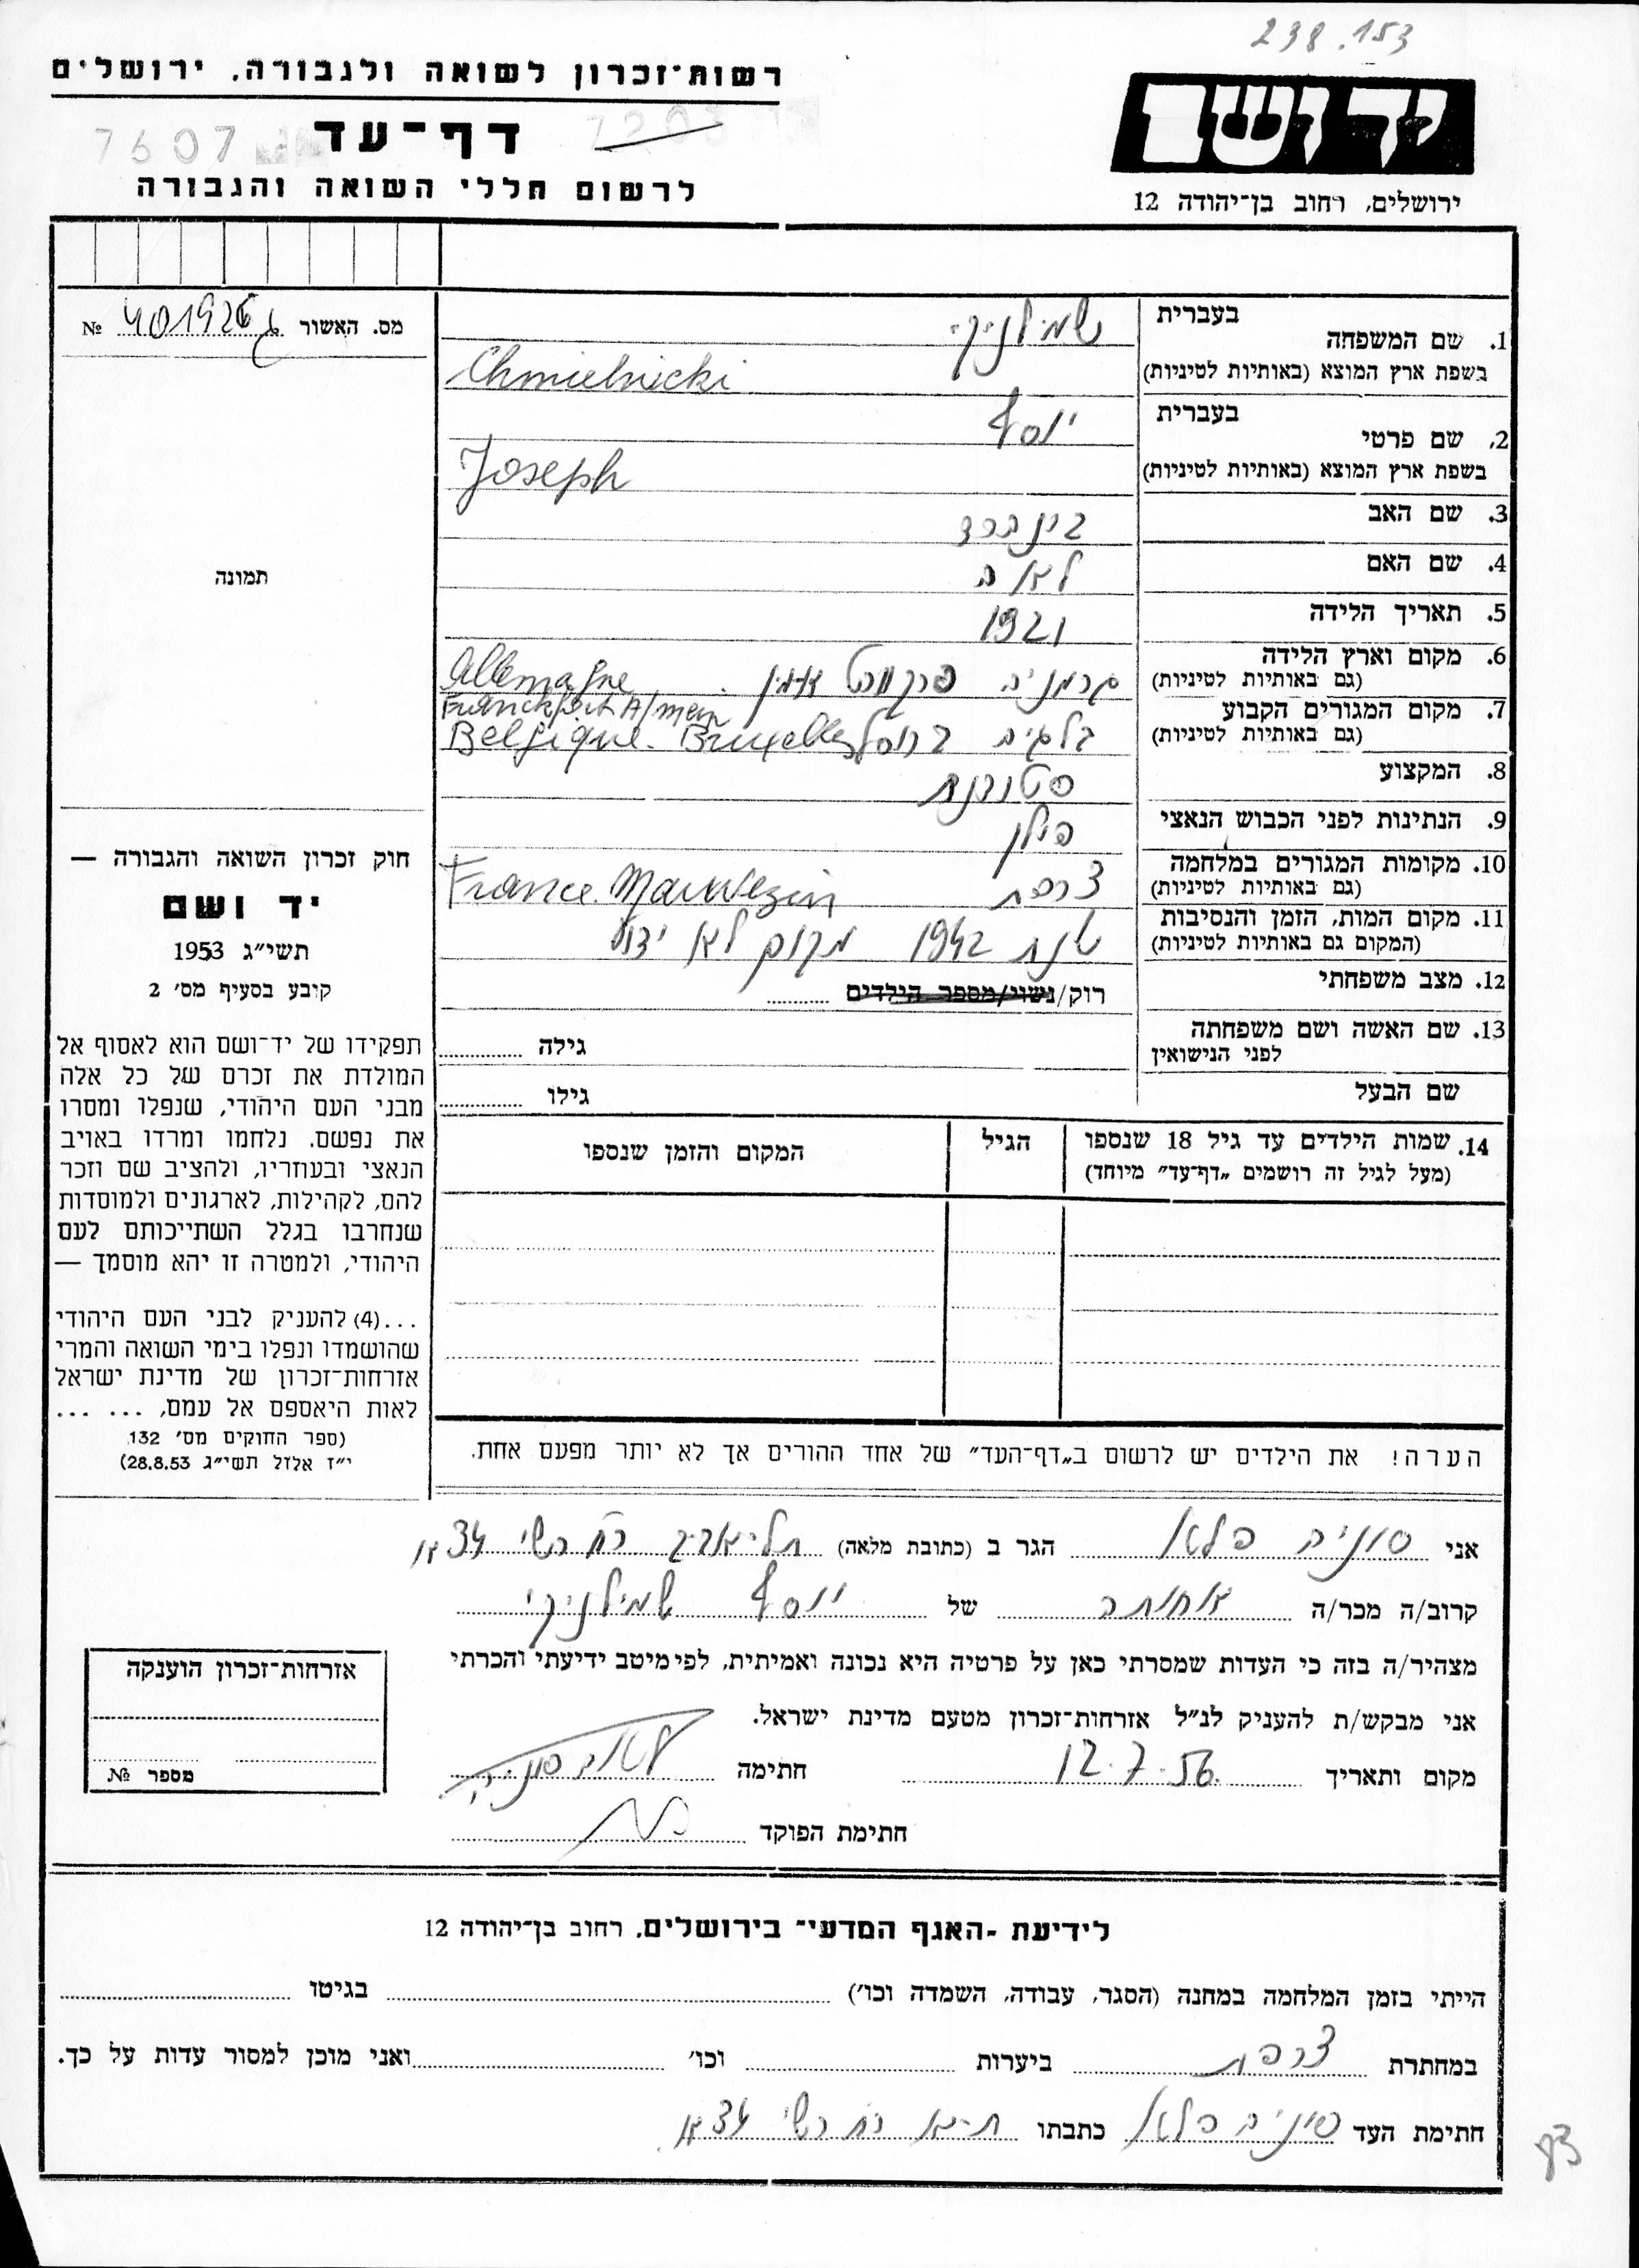 238.153
רשות־זכרון לשואה ולגבורה, ירושלים
דף־עד
7607
לרשום חללי השואה והגבורה
יד ושם
ירושלים, רחוב בן־יהודה 12
מס. האשור 401926 №
תמונה
חוק זכרון השואה והגבורה —
יד ושם
תשי״ג 1953
קובע בסעיף מס׳ 2
תפקידו של יד־ושם הוא לאסוף אל
המולדת את זכרם של כל אלה
מבני העם היהודי, שנפלו ומסרו
את נפשם, נלחמו ומרדו באויב
הנאצי ובעוזריו, ולהציב שם וזכר
להם, לקהילות, לארגונים ולמוסדות
שנחרבו בגלל השתייכותם לעם
היהודי, ולמטרה זו יהא מוסמך —
...(4) להעניק לבני העם היהודי
שהושמדו ונפלו בימי השואה והמרי
אזרחות־זכרון של מדינת ישראל
לאות היאספם אל עמם, ... ...
(ספר החוקים מס׳ 132,
י״ז אלול תשי״ג 28.8.53)
בעברית
1. שם המשפחה שמילניקי
בשפת ארץ המוצא (באותיות לטיניות) Chmielnicki
בעברית
2. שם פרטי יוסף
בשפת ארץ המוצא (באותיות לטיניות) Joseph
3. שם האב
4. שם האם לאה
5. תאריך הלידה 1921
6. מקום וארץ הלידה גרמניה פרנקפורט Allemagne
(גם באותיות לטיניות) Franckfort A/mein
7. מקום המגורים הקבוע בלגיה ברוסל Belgique. Bruxelles
(גם באותיות לטיניות)
8. המקצוע סטודנט
9. הנתינות לפני הכבוש הנאצי פולין
10. מקומות המגורים במלחמה צרפת France.
(גם באותיות לטיניות)
11. מקום המות, הזמן והנסיבות שנת 1942 מקום לא ידוע
(המקום גם באותיות לטיניות)
12. מצב משפחתי רוק/נשוי/מספר הילדים
13. שם האשה ושם משפחתה גילה
לפני הנישואין
שם הבעל גילו
14. שמות הילדים עד גיל 18 שנספו הגיל המקום והזמן שנספו
(מעל לגיל זה רושמים „דף־עד״ מיוחד)
הערה! את הילדים יש לרשום ב„דף־העד״ של אחד ההורים אך לא יותר מפעם אחת.
אני סוניה פלאו הגר ב (כתובת מלאה) תל־אביב רח רשי 34
קרוב/ה מכר/ה אחותה של יוסף שמילניקי
מצהיר/ה בזה כי העדות שמסרתי כאן על פרטיה היא נכונה ואמיתית, לפי מיטב ידיעתי והכרתי
אני מבקש/ת להעניק לנ״ל אזרחות־זכרון מטעם מדינת ישראל.
מקום ותאריך 12.7.56 חתימה
חתימת הפוקד
אזרחות־זכרון הוענקה
מספר №
לידיעת ־האגף המדעי־ בירושלים, רחוב בן־יהודה 12
הייתי בזמן המלחמה במחנה (הסגר, עבודה, השמדה וכו׳) בגיטו
במחתרת צרפת ביערות וכו׳ ואני מוכן למסור עדות על כך.
חתימת העד סוניה פלאו כתבתו ת־א רח רשי 34